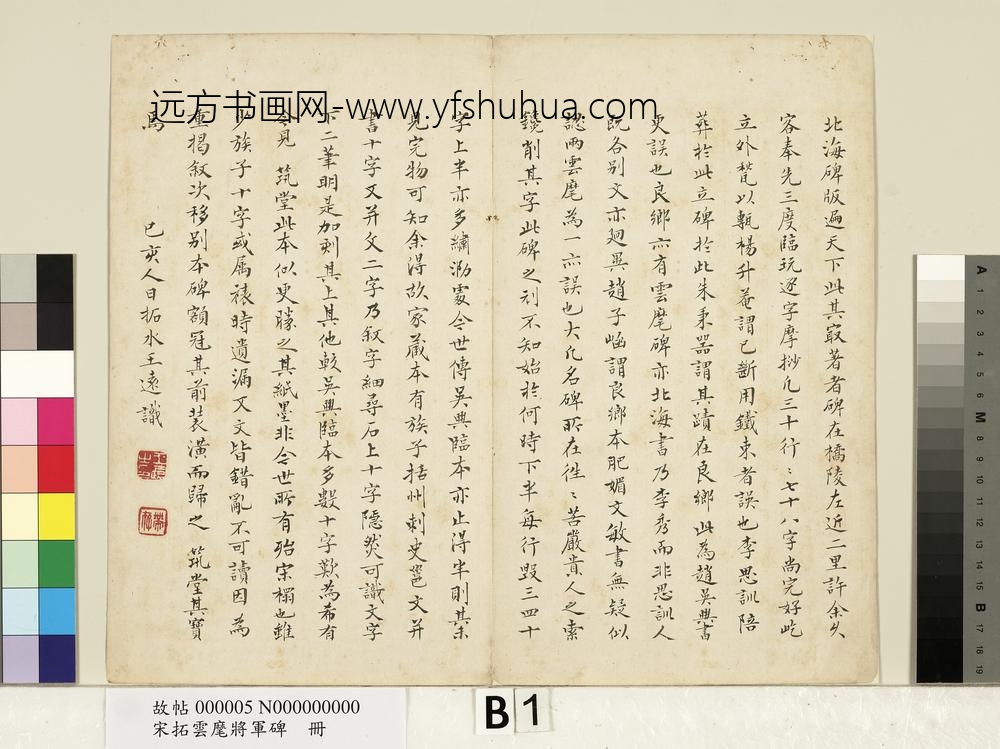 远方书画网-www.yfshuhua.com
北海碑版遍天下此其最著者碑在橋陵左近二里許余久
容奉先三度臨玩逐字摩挱凢三十行〻七十八字尚完好屹
立外甃以甎楊升菴謂已斷用鐵束者誤也李思訓陪
葬於此立碑於此朱秉器謂其蹟在良鄉此為趙吳興書
更誤也良鄉亦有雲麾碑亦北海書乃李秀而非思訓人
既各別文亦迥異趙子凾謂良鄉本肥媚文敏書無疑似
認兩雲麾為一亦誤也大凢名碑所在徃〻苦嚴貴人之索
鐃削其字此碑之刓不知始於何時下半每行毀三四十
字上半亦多繡泐處今世傳吳興臨本亦止得半則其未
見完物可知余得故家藏本有族子括州刺史邕文并
書十字又并文二字乃敘字細尋石上十字隱然可識文字
下二筆明是加刻其上其他較吳興臨本多數十字歎為希有
今見 筑堂此本似更勝之其紙墨非今世所有殆宋搨也雖
少族子十字或屬裱時遺漏又文皆錯亂不可讀因 為
重揭敘次移別本碑額冠其前裝潢而歸之 筑堂其寶
焉
己亥人日拓水王遠識
故帖 000005 N000000000
宋拓雲麾將軍碑 冊
B 1
A 1 2 3 4 5 6 M 8 9 10 11 12 13 14 15 B 17 18 19